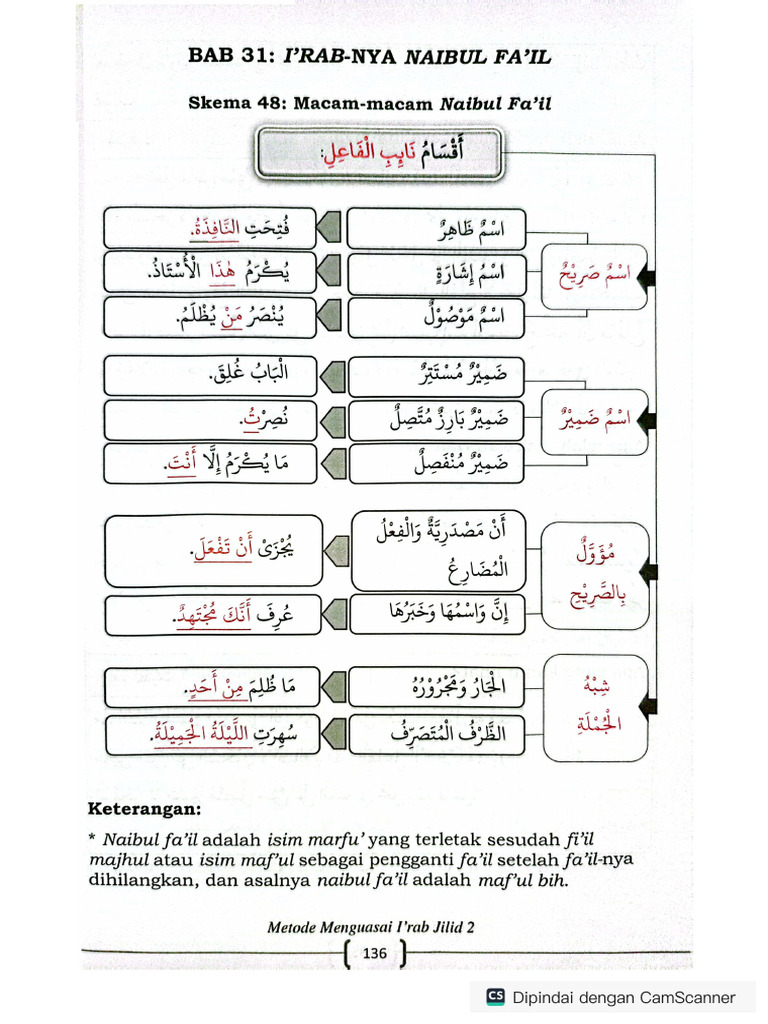 BAB 31: I'RAB-NYA NAIBUL FA'IL
Skema 48: Macam-macam Naibul Fa'il
أَقْسَامُ نَايِبِ الْفَاعِلِ:
اسْمٌ صَرِيْحٌ
اسْمٌ ظَاهِرٌ
فُتِحَتِ النَّافِذَةُ.
اسْمُ إِشَارَةٍ
يُكْرَمُ هٰذَا الْأُسْتَاذُ.
اسْمٌ مَوْصُوْلٌ
يُنْصَرُ مَنْ يُظْلَمُ.
اسْمٌ ضَمِيْرٌ
ضَمِيْرٌ مُسْتَتِرٌ
الْبَابُ غُلِقَ.
ضَمِيْرٌ بَارِزٌ مُتَّصِلٌ
نُصِرْتُ.
ضَمِيْرٌ مُنْفَصِلٌ
مَا يُكْرَمُ إِلَّا أَنْتَ.
مُؤَوَّلٌ
بِالصَّرِيْحِ
أَنْ مَصْدَرِيَّةٌ وَالْفِعْلُ
الْمُضَارِعُ
يُجْزَىْ أَنْ تَفْعَلَ.
إِنَّ وَاسْمُهَا وَخَبَرُهَا
عُرِفَ أَنَّكَ مُجْتَهِدٌ.
شِبْهُ
الْجُمْلَةِ
الْجَارُ وَمَجْرُوْرُهُ
مَا ظُلِمَ مِنْ أَحَدٍ.
الظَّرْفُ الْمُتَصَرِّفُ
سُهِرَتِ اللَّيْلَةُ الْجَمِيْلَةُ.
Keterangan:
* Naibul fa'il adalah isim marfu' yang terletak sesudah fi'il
majhul atau isim maf'ul sebagai pengganti fa'il setelah fa'il-nya
dihilangkan, dan asalnya naibul fa'il adalah maf'ul bih.
Metode Menguasai I'rab Jilid 2
136
CS Dipindai dengan CamScanner